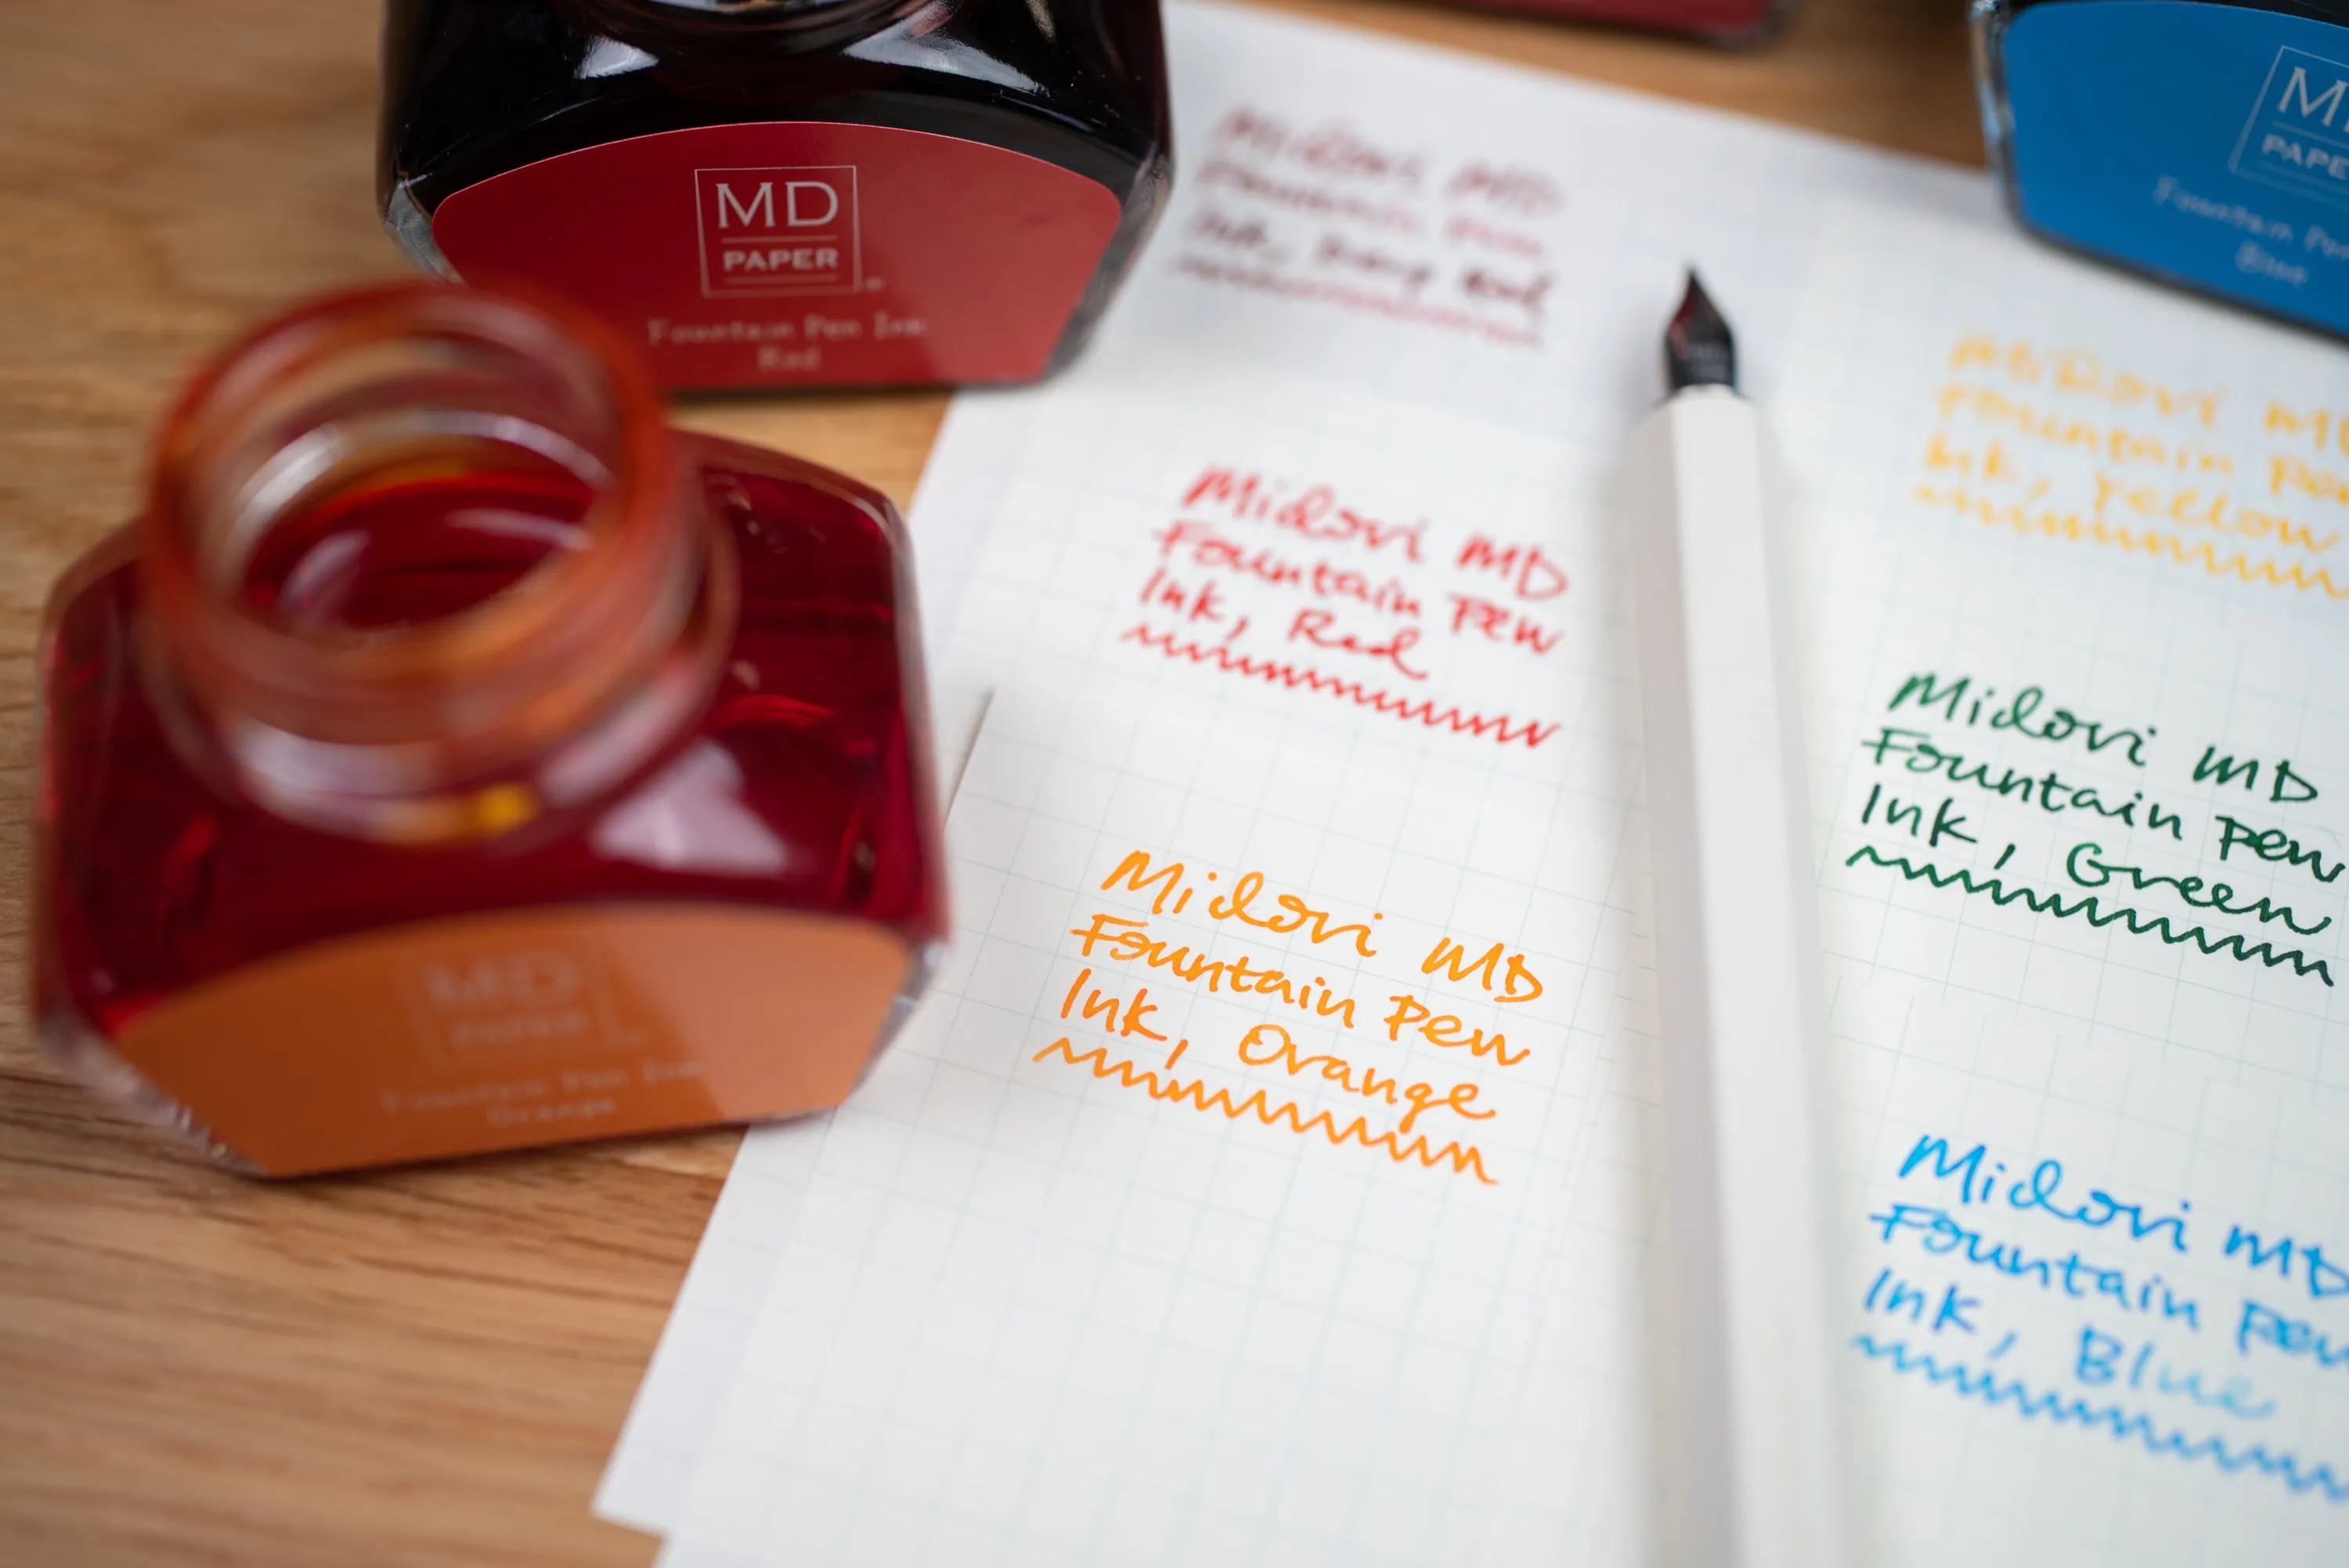 MD
PAPER
Fountain Pen Ink
Red
MD
PAPER
Fountain Pen Ink
Orange
Midori MD
Fountain Pen
Ink, Deep Red
Midori MD
Fountain Pen
Ink, Red
Midori MD
Fountain Pen
Ink, Orange
PAPE
Fountain Pen
Blue
Midori M
Fountain Pen
Ink, Yellow
Midori MD
Fountain Pen
Ink, Green
Midori MD
Fountain Pen
Ink, Blue